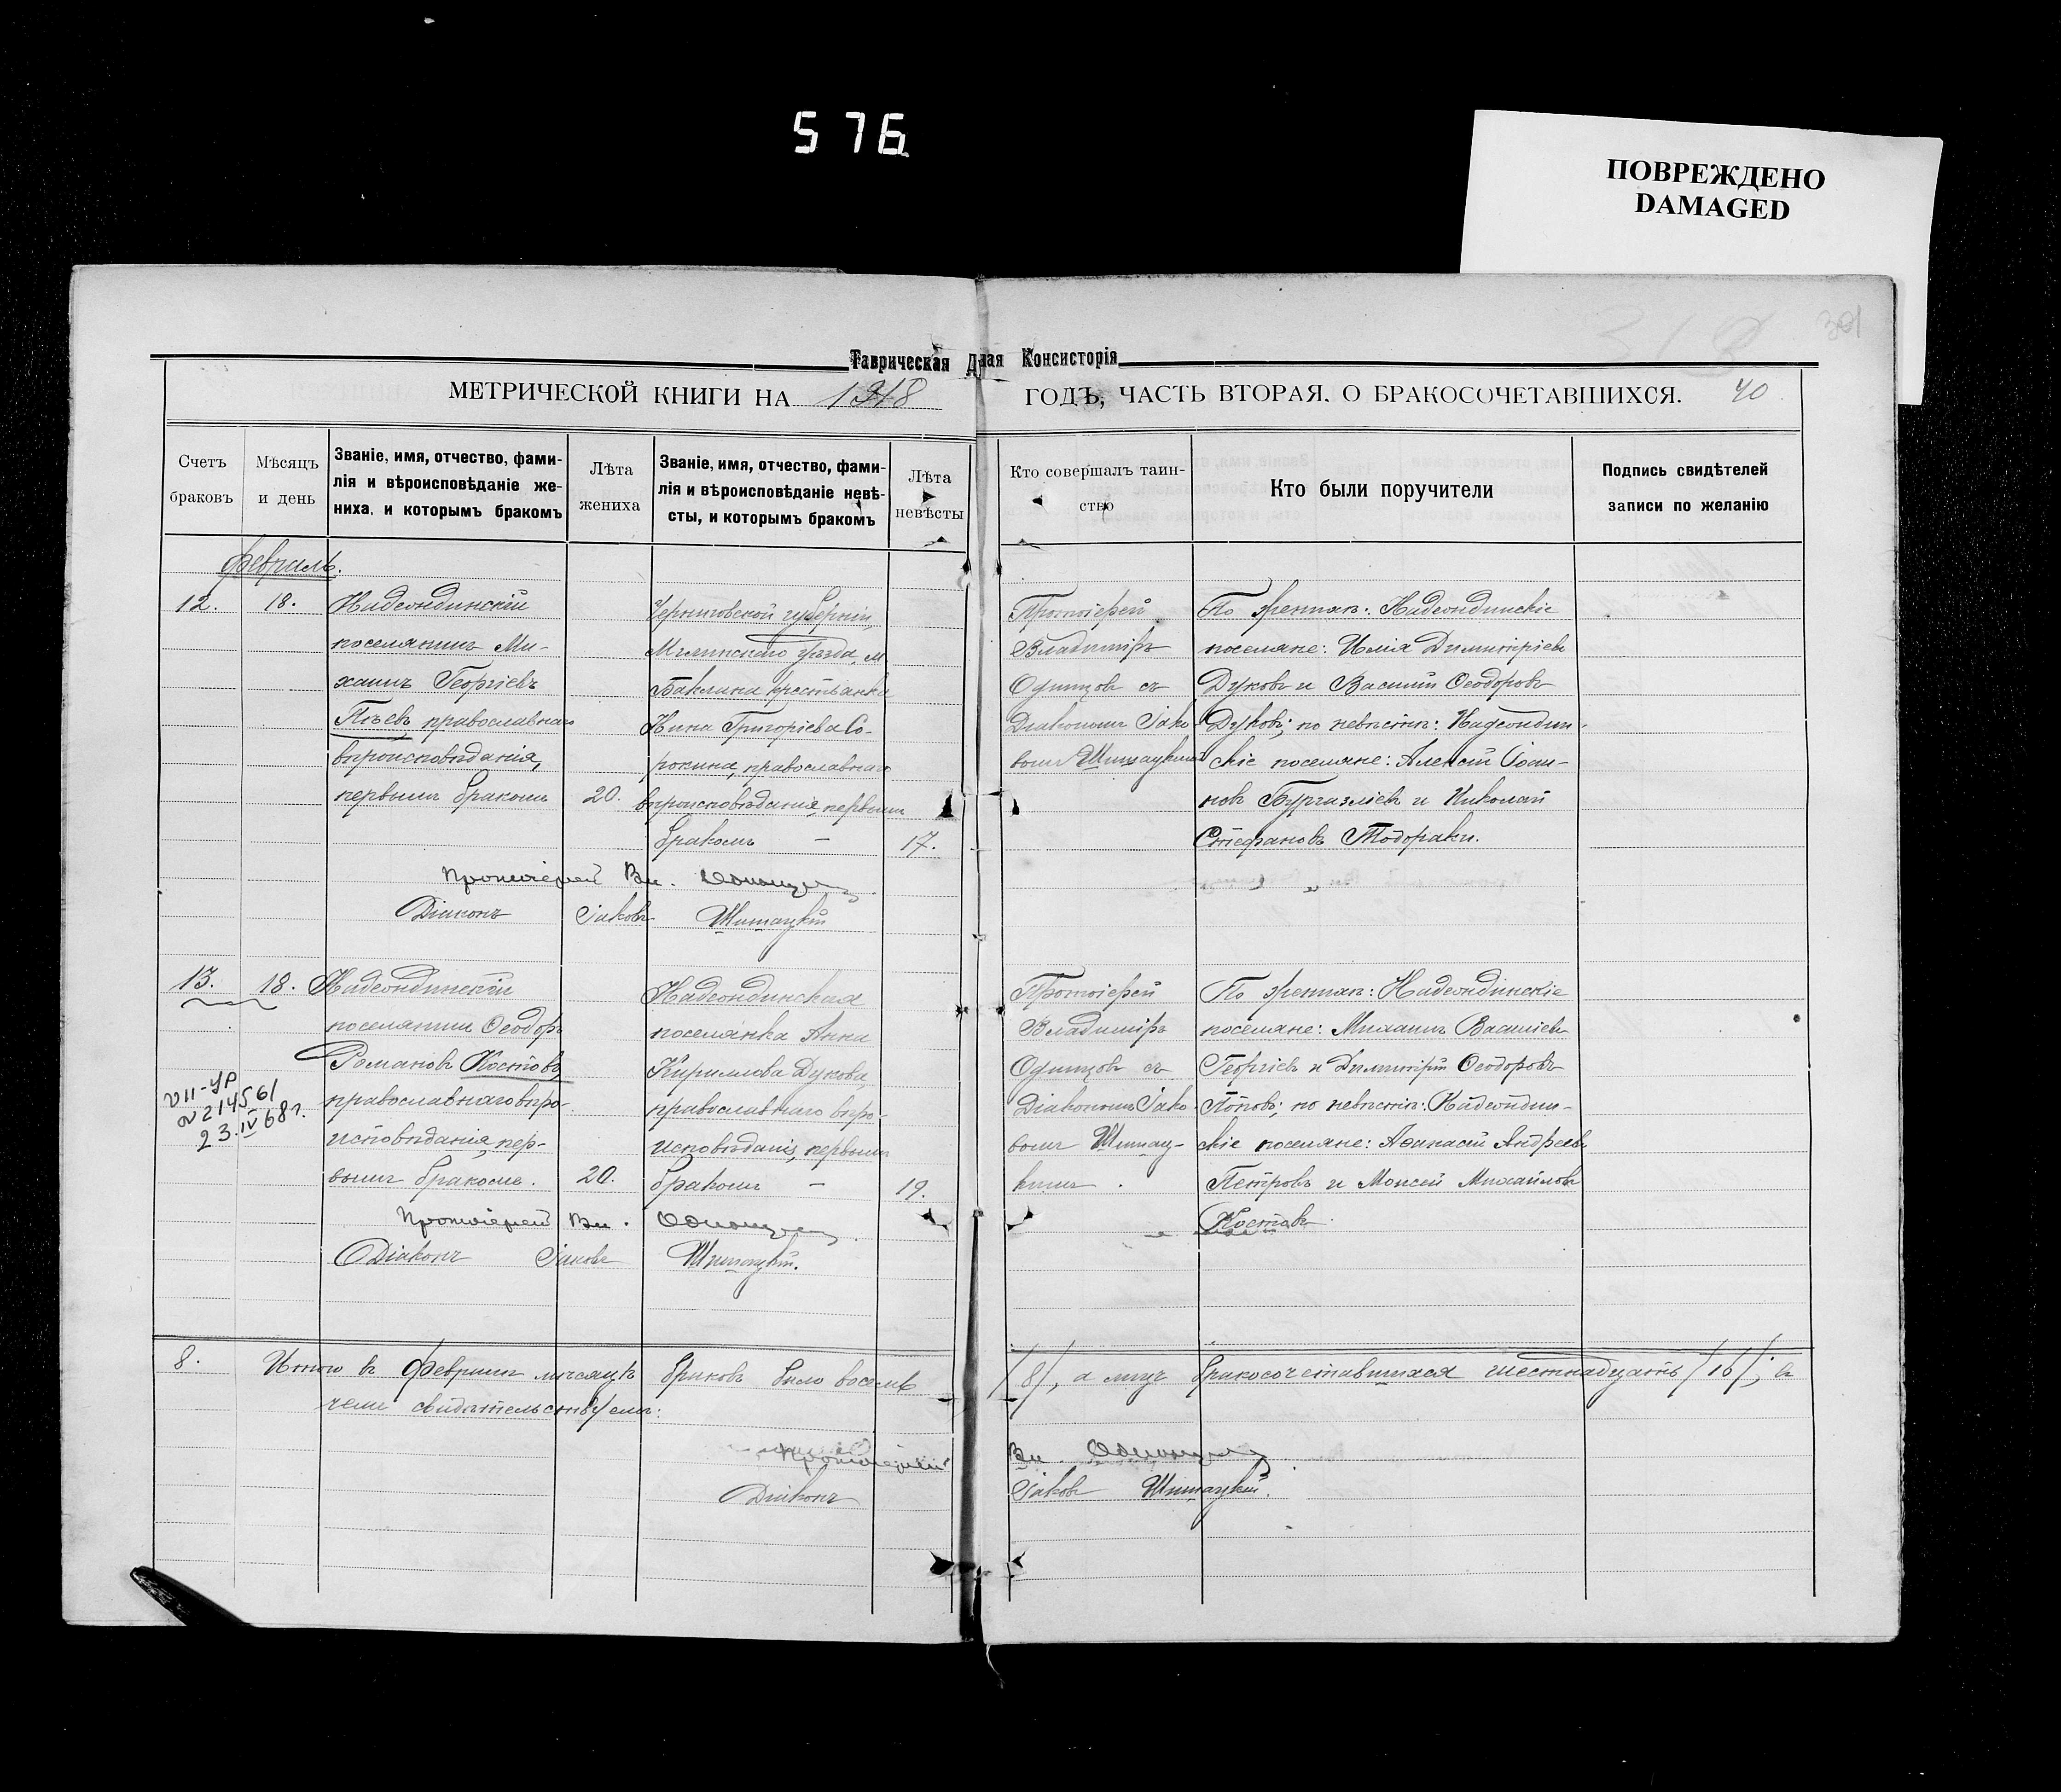 576
ПОВРЕЖДЕНО
DAMAGED
301
Таврическая Д ная Консисторія
МЕТРИЧЕСКОЙ КНИГИ НА 1918 ГОДЪ, ЧАСТЬ ВТОРАЯ. О БРАКОСОЧЕТАВШИХСЯ. 40
Счетъ браковъ
Мѣсяцъ и день
Званіе, имя, отчество, фами-
лія и вѣроисповѣданіе же-
ниха, и которымъ бракомъ
Лѣта жениха
Званіе, имя, отчество, фами-
лія и вѣроисповѣданіе невѣ-
сты, и которымъ бракомъ
Лѣта невѣсты
Кто совершалъ таин-
ство
Кто были поручители
Подпись свидѣтелей
записи по желанію
Февраль.
12.
18.
поселянинъ Ми-
хаилъ Георгіевъ
православнаго
вѣроисповѣданія,
первымъ бракомъ
20.
Черниговской губерніи,
Мглинскаго уѣзда, м.
Баклина крестьянка
Нина Григоріева Со-
рокина, православнаго
вѣроисповѣданія, первымъ
бракомъ —
17.
Протоіерей
Владиміръ
Одинцовъ съ
Діакономъ Іако-
вомъ Шишацкимъ
поселяне: Илія Димитріевъ
Дуковъ и Василій Ѳеодоровъ
Дуковъ; по невѣстѣ:
скіе поселяне: Алексій
и Николай
Стефановъ Тодораки.
Протоіерей Вл. Одинцовъ
Діаконъ Іаковъ Шишацкій
13.
18.
поселянинъ Ѳеодоръ
Романовъ Костовъ,
православнаго вѣро-
исповѣданія, пер-
вымъ бракомъ.
20.
поселянка Анна
Кириллова Дукова,
православнаго вѣро-
исповѣданія, первымъ
бракомъ —
19.
Протоіерей
Владиміръ
Одинцовъ съ
Діакономъ Іако-
вомъ Шишац-
кимъ.
поселяне: Михаилъ Василіевъ
Георгіевъ и Димитрій Ѳеодоровъ
Поповъ; по невѣстѣ:
скіе поселяне: Аѳанасій Андреевъ
Петровъ и Моисей Михайловъ
Костовъ.
VII-УР
N 214561
23.IV 68г.
Протоіерей Вл. Одинцовъ
Діаконъ Іаковъ Шишацкій.
8.
Итого въ Февралѣ мѣсяцѣ браковъ было восемь /8/, а лицъ бракосочетавшихся шестнадцать /16/; въ
чемъ свидѣтельствуемъ:
Протоіерей Вл. Одинцовъ
Діаконъ Іаковъ Шишацкій.